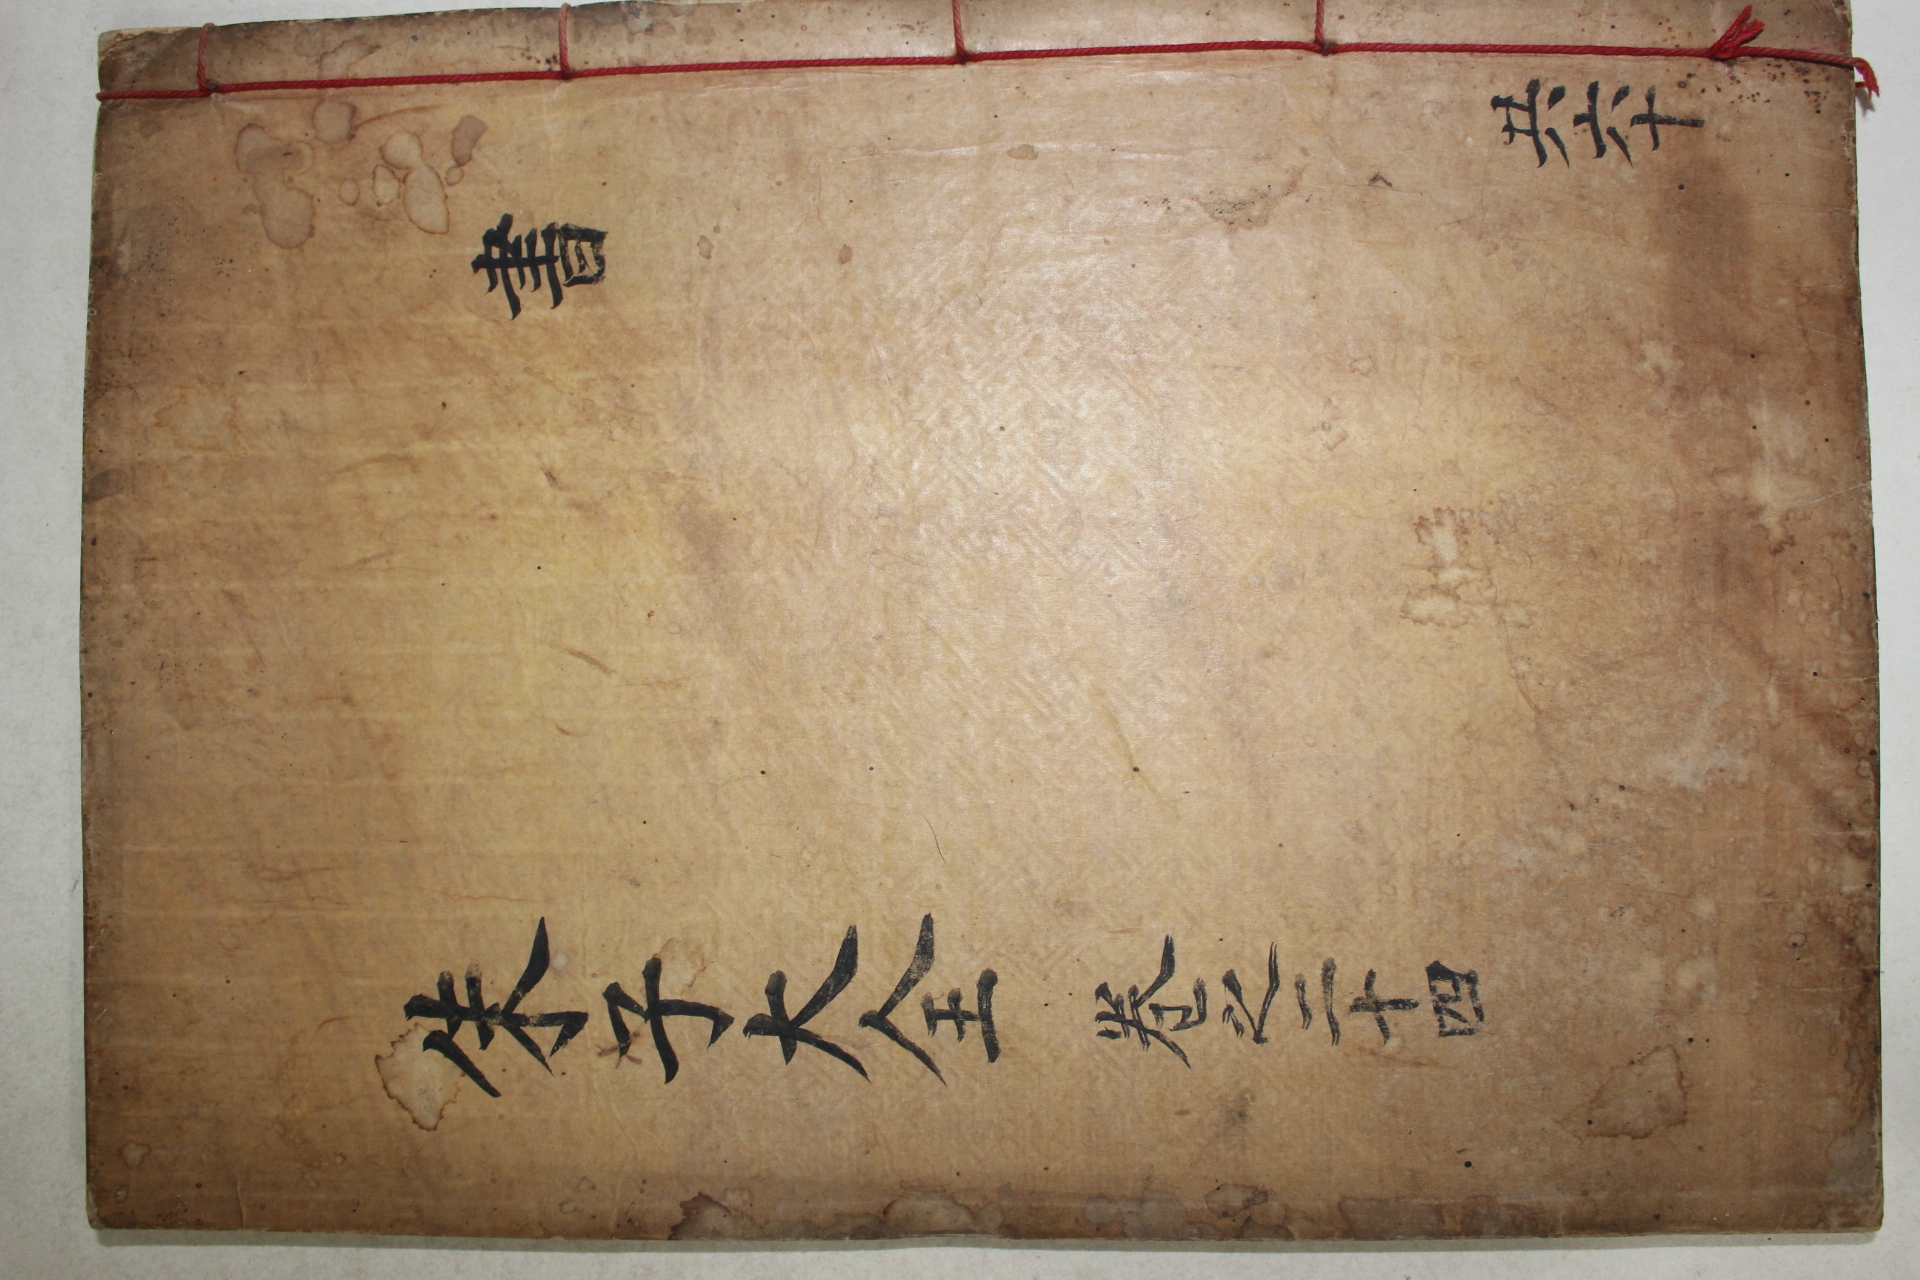 朱子大全 卷之二十四
書
共六十